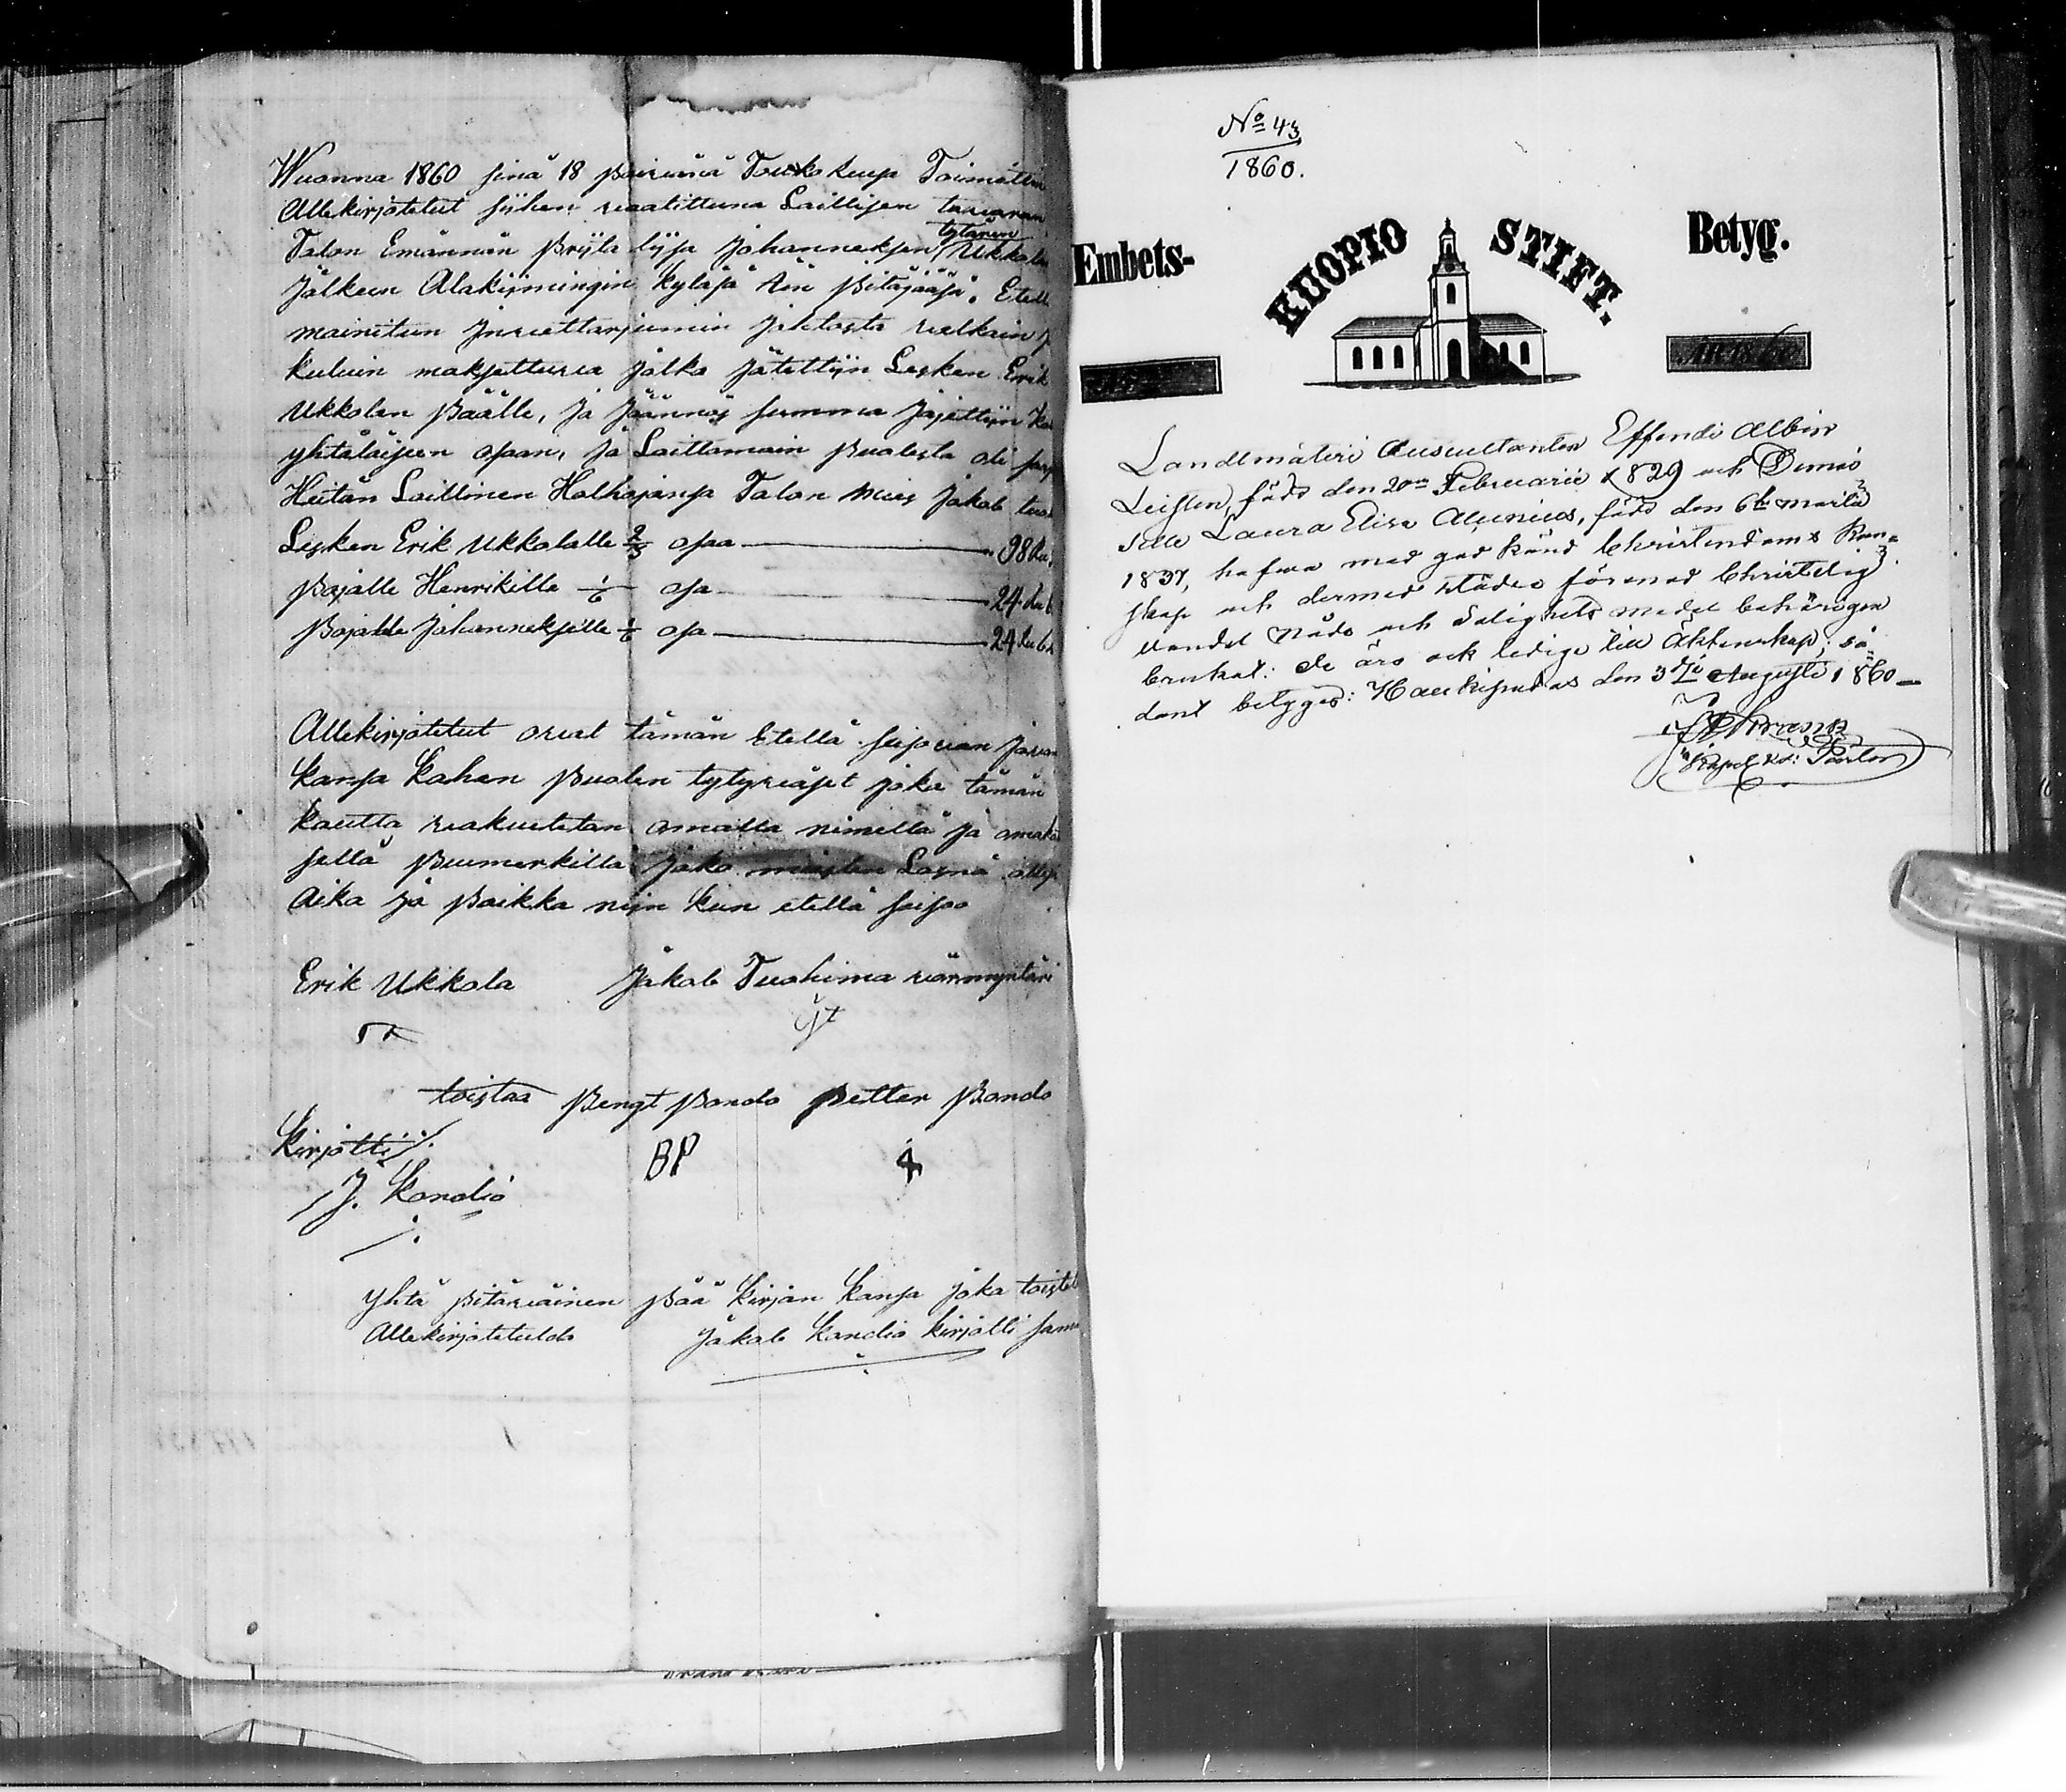 Wuonna 1860 sinä 18 päiwänä Toukokuusa Toimitettin
Allekirjotetut siihen waatittuna Laillisen tawaran
Talon Emännän Priita Lijsa Johanneksen tytären Ukkolan
Jälkeen Alakijmingin kyläsä Iin Pitäjääsä. Etellä
mainitun Inwettarjumin Johtosta welkain ja
kuluin maksettuwa jolka jätettiin Lesken Erik
Ukkolan Päälle, ja Jäännös summa Jajettiin
yhtäläiseen osaan, ja Laittamain Puolesta oli
Heitän Laillinen Holhojansa Talon mies Jakob
Lesken Erik Ukkolalle 2/3 osaa 98
Pojalle Henrikille 1/6 osa 24 Rub
Pojalle Johanneksille 1/6 osa 24 Rub
Allekirjotetut owat tämän Etellä seisowan jawon
kansa kahen Puolen tytywäset joka tämän
kautta wakuutetan omalla nimellä ja
sellä Puumerkillä jako miesten Läsnä
Aika ja Paikka niin kun etellä seisoo
Erik Ukkola Jakob Tuohima
toistaa Bengt Pondo Petter Pondo
Kirjotti
BP
J. Kandio
Yhtä pitäwäinen Pää kirjan kansa joka
Allekirjotetulda Jakob Kandio kirjotti
No 43
1860.
Embets- KUOPIO STIFT. Betyg.
Landtmäteri Auscultanten Effendi Albin
Leisten, född den 20de Februarii 1829 och Demoi
selle Laura Elise Alcenius, född den 6te Martii
1837, hafwa med god känd Christendoms Kun=
skap och dermed städse förenad Christelig
wandel Nåds och Salighets medel behörigen
brukat: de äro ock ledige till Äktenskap; så=
dant betygges: Haukipudas den 3dje Augusti 1860